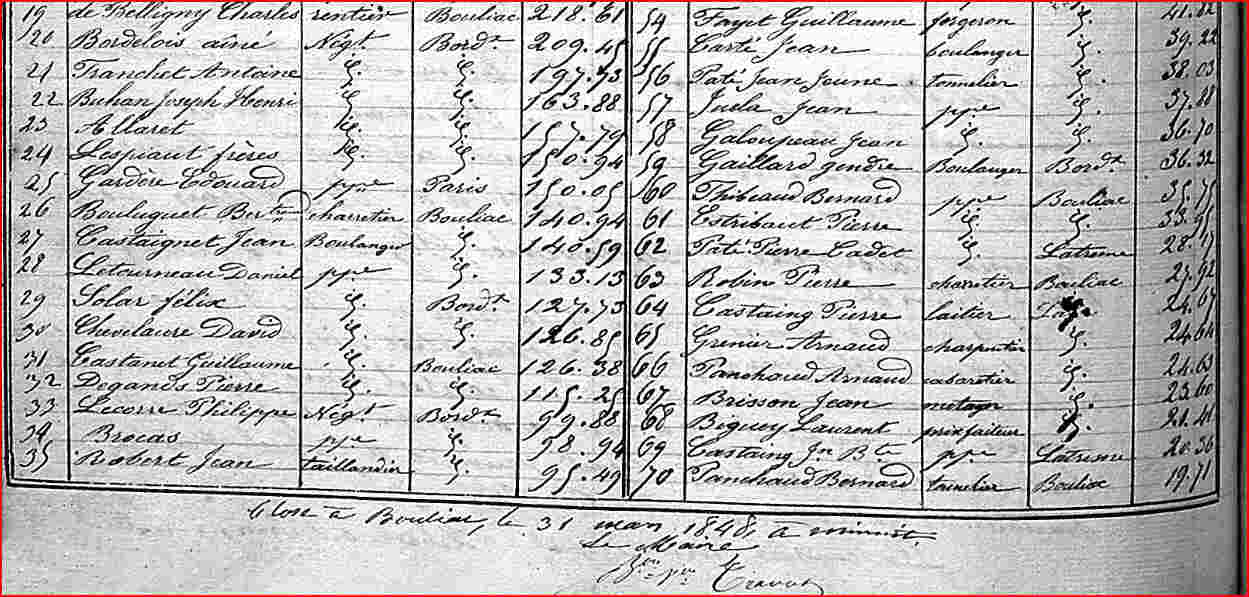 19 de Belligny Charles rentier Bouliac 218.61
20 Bordelois aîné Négt. Bordx. 209.45
21 Tranchet Antoine id. id. 197.73
22 Buhan Joseph Henri id. id. 163.88
23 Allaret id. id. 157.79
24 Lespiaut frères id. id. 150.94
25 Gardère Edouard ppre Paris 150.05
26 Bouluguet Bertrand charretier Bouliac 140.94
27 Castaignet Jean Boulanger id. 140.59
28 Letourneau Daniel ppre id. 133.13
29 Solar félix id. Bordx. 127.73
30 Chevelaure David id. id. 126.85
31 Castanet Guillaume id. Bouliac 126.38
32 Degands Pierre id. id. 115.25
33 Lecorre Philippe Négt Bordx 99.88
34 Brocas ppre id. 98.94
35 Robert Jean taillandier id. 95.49
54 Fayet Guillaume forgeron id. 41.82
55 Carté Jean boulanger id. 39.22
56 Paté Jean Jeune tonnelier id. 38.03
57 Jucla Jean ppre id. 37.88
58 Galoupeau Jean id. id. 36.70
59 Gaillard gendre Boulanger Bordx. 36.32
60 Thibeaud Bernard ppre Bouliac 35.75
61 Estribaut Pierre id. id. 33.95
62 Paté Pierre Cadet id. Latresne 28.17
63 Robin Pierre charretier Bouliac 27.92
64 Castaing Pierre laitier 24.67
65 Grenier Arnaud charpentier id. 24.64
66 Panchaud Arnaud cabaretier id. 24.63
67 Brisson Jean id. 23.60
68 Biguey Laurent prixfaiteur id. 21.41
69 Castaing Jn Bte ppre Latresne 20.36
70 Panchaud Bernard tonnelier Bouliac 19.71
Clos à Bouliac, le 31 mars 1848, à minuit.
Le Maire